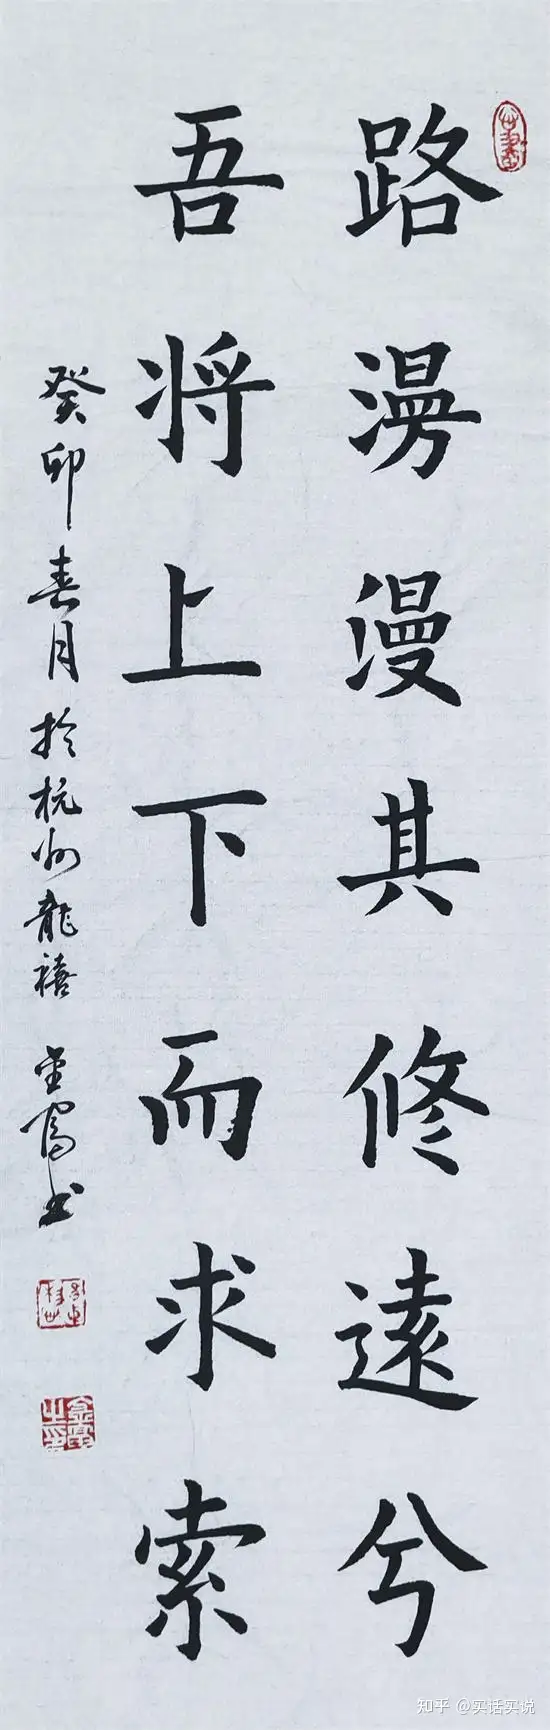 路漫漫其修遠兮
吾将上下而求索
癸卯春月於杭州龍禧
书
知乎 @实话实说